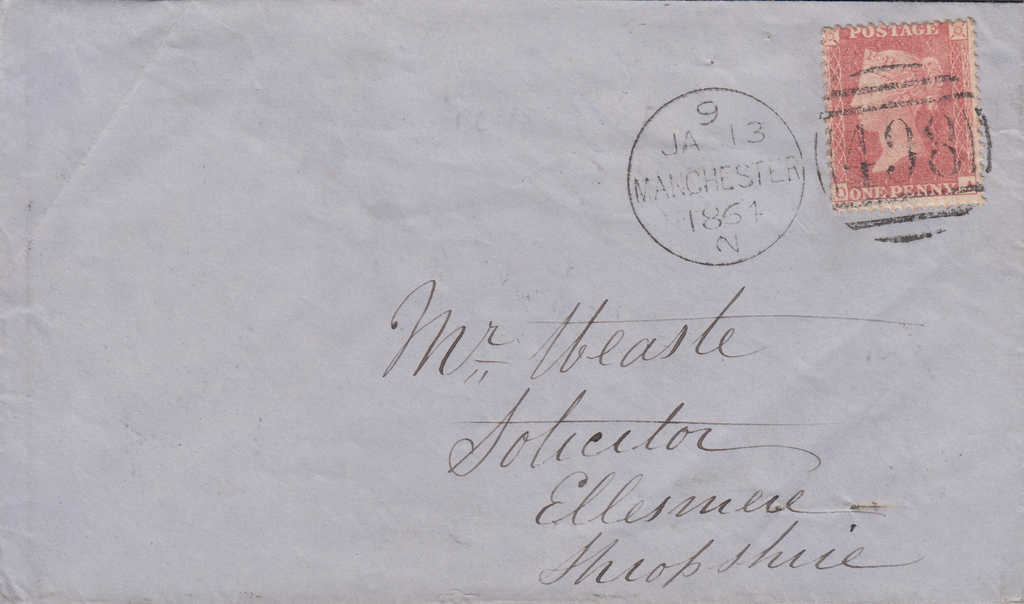 POSTAGE
9
JA 13
MANCHESTER
1864
N
498
D ONE PENNY
Mr
Solicitor
Ellesmere
Shropshire